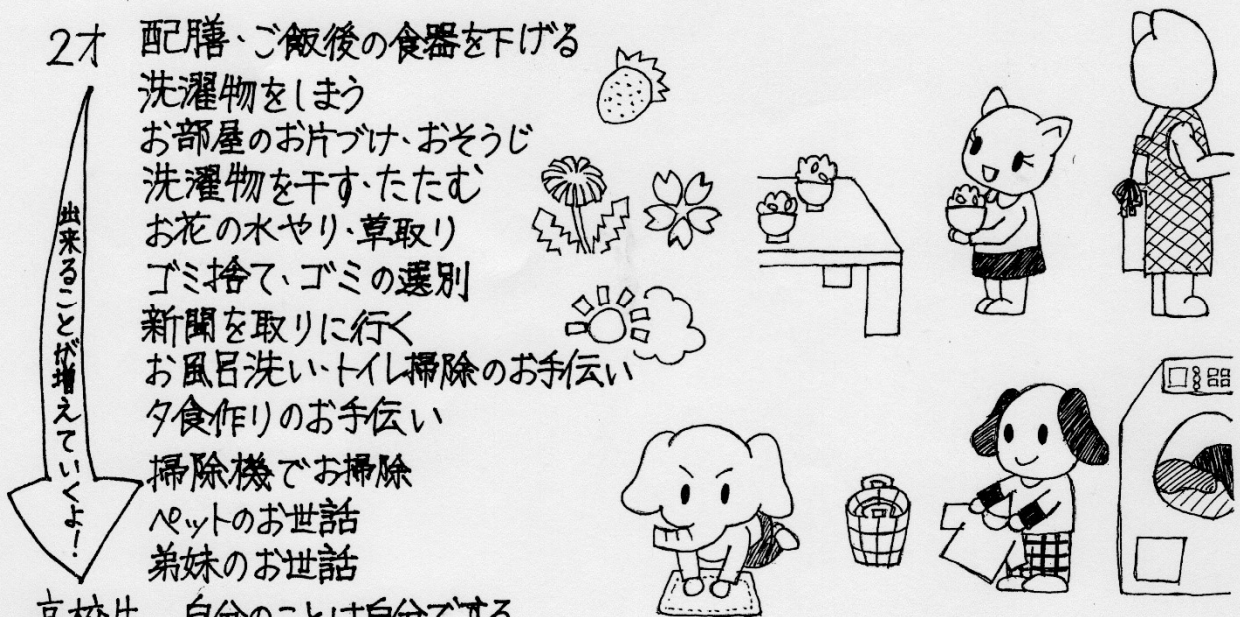 2才 配膳・ご飯後の食器を下げる
洗濯物をしまう
お部屋のお片づけ・おそうじ
洗濯物を干す・たたむ
お花の水やり・草取り
ゴミ捨て・ゴミの選別
新聞を取りに行く
お風呂洗い・トイレ掃除のお手伝い
夕食作りのお手伝い
掃除機でお掃除
ペットのお世話
弟妹のお世話
高校生 自分のことは自分でする
出来ることが増えていくよ!